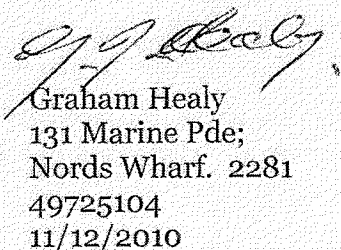 G J Healy
Graham Healy
131 Marine Pde;
Nords Wharf. 2281
49725104
11/12/2010